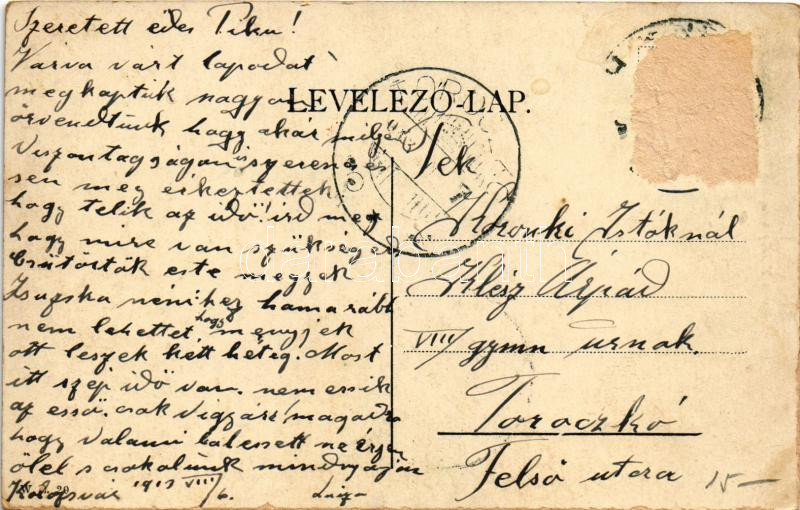 Szeretett édes Piku!
Várva várt lapodat
megkaptuk nagyon
örvendtünk hogy akár milyen
viszontagságosan szerencsé
sen meg érkeztettek
hogy telik az idő! ird meg
hogy mire van szükséged
Csütörtök este megyek
Zsuzska nénihez hamarább
nem lehettet hogy menyjek
ott leszek két hétig. Most
itt szép idő van. nem essik
az essö. csak vigyázz magadra
hogy valami balessett ne érjen
ölel s csokolunk mindnyájan
Kolozsvár 1913 VIII/6.
LEVELEZŐ-LAP.
Tek
Koronki Istóknál
Klész Árpád
VIII/ gymn urnak.
Toroczkó
Felső utcza
15–
darabanth